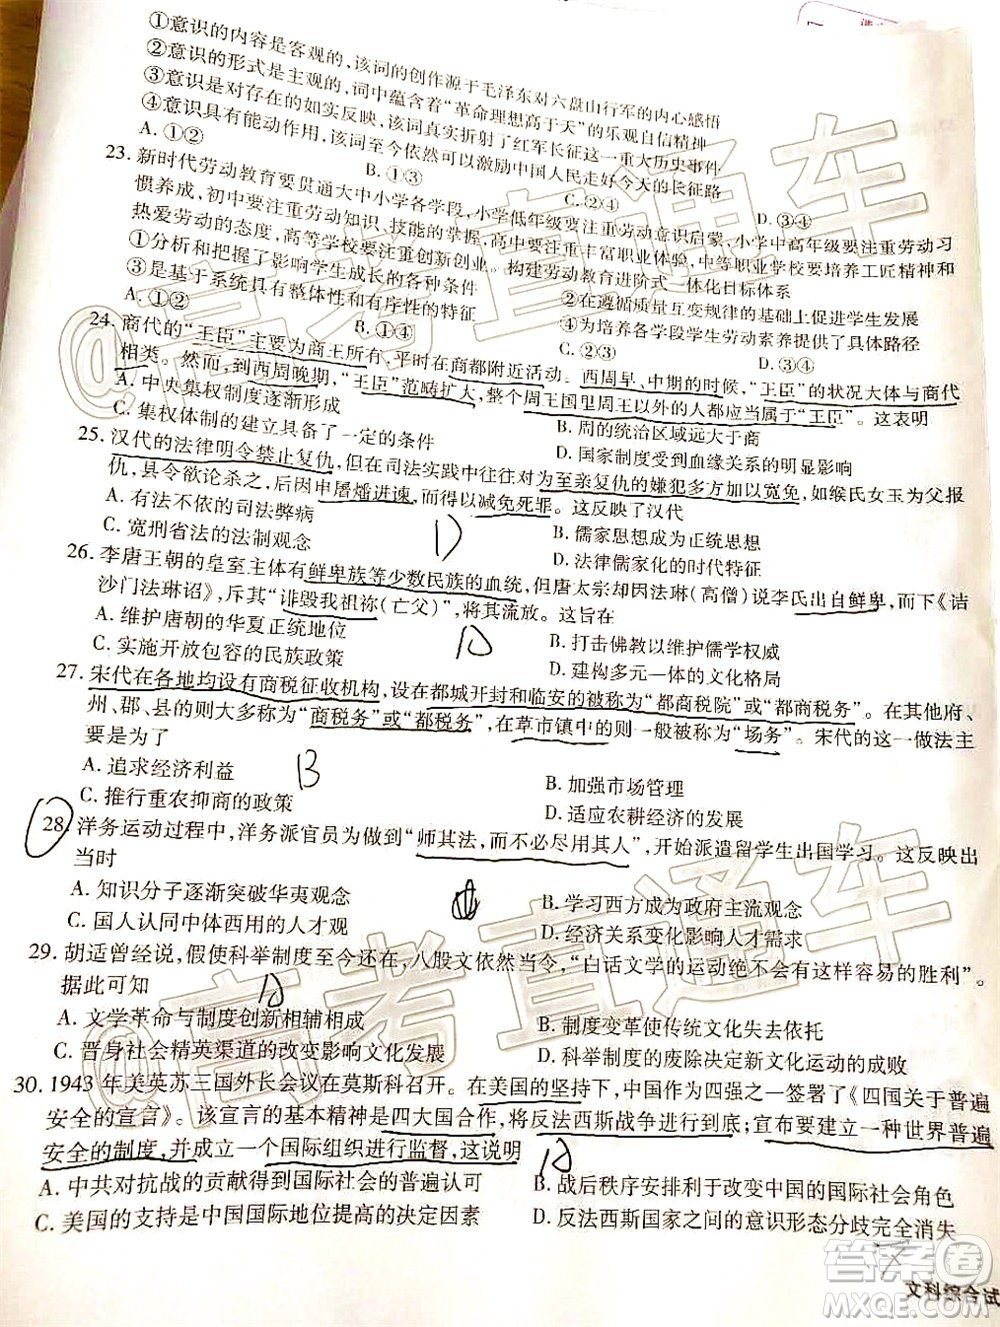 ①意识的内容是客观的，该词的创作源于毛泽东对六盘山行军的内心感悟
②意识的形式是主观的，词中蕴含着“革命理想高于天”的乐观自信精神
③意识是对存在的如实反映，该词真实折射了红军长征这一重大历史事件
④意识具有能动作用，该词至今依然可以激励中国人民走好今天的长征路
A. ①② B. ①③ C. ②④ D. ③④
23. 新时代劳动教育要贯通大中小学各学段，小学低年级要注重劳动意识启蒙，小学中高年级要注重劳动习
惯养成，初中要注重劳动知识、技能的掌握，高中要注重丰富职业体验，中等职业学校要培养工匠精神和
热爱劳动的态度，高等学校要注重创新创业。构建劳动教育进阶式一体化目标体系
①分析和把握了影响学生成长的各种条件 ②在遵循随质量互变规律的基础上促进学生发展
③基于系统具有整体性和有序性的特征 ④为培养各学段学生劳动素养提供了具体路径
A. ①② B. ①④ C. ②③ D. ③④
24. 商代的“王臣”主要为商王所有，平时在商都附近活动。西周早、中期的时候，“王臣”的状况大体与商代
相类。然而，到西周晚期，“王臣”范畴扩大，整个周王国里周王以外的人都应当属于“王臣”。这表明
A. 中央集权制度逐渐形成 B. 周的统治区域远大于商
C. 集权体制的建立具备了一定的条件 D. 国家制度受到血缘关系的影响
25. 汉代的法律明令禁止复仇，但在司法实践中往往对为至亲复仇的嫌犯多方加以宽免，如缑氏女玉为父报
仇，县令欲论杀之，后因申屠蟠进谏，而最终得以减免死罪。这反映了汉代
A. 有法不依的司法弊病 B. 儒家思想成为正统思想
C. 宽刑省法的法制观念 D. 法律儒家化的时代特征
D
26. 李唐王朝的皇室主体有鲜卑族等少数民族的血统，但唐太宗却因法琳(高僧)说李氏出自鲜卑，而下《诘
沙门法琳诏》，斥其“诽毁我祖祢(亡父)”，将其流放。这旨在
A. 维护唐朝的华夏正统地位 B. 打击佛教以维护儒学权威
C. 实施开放包容的民族政策 D. 建构多元一体的文化格局
27. 宋代在各地均设有商税征收机构，设在都城开封和临安的被称为“都商税院”或“都商税务”。在其他府、
州、郡、县的则大多称为“商税务”或“都税务”，在草市镇中的则一般被称为“场务”。宋代的这一做法主
要是为了
A. 追求经济利益 B. 加强市场管理
C. 推行重农抑商的政策 D. 适应农耕经济的发展
B
28. 洋务运动过程中，洋务派官员为做到“师其法，而不必尽用其人”，开始派遣留学生出国学习。这反映出
当时
A. 知识分子逐渐突破华夷观念 B. 学习西方成为政府主流观念
C. 国人认同中体西用的人才观 D. 经济关系变化影响人才需求
29. 胡适曾经说，假使科举制度至今还在，八股文依然当令，“白话文学的运动绝不会有这样容易的胜利”。
据此可知
A. 文学革命与制度创新相辅相成 B. 制度变革使传统文化失去依托
C. 晋身社会精英渠道的改变影响文化发展 D. 科举制度的废除决定新文化运动的成败
30. 1943 年美英苏三国外长会议在莫斯科召开。在美国的坚持下，中国作为四强之一签署了《四国关于普遍
安全的宣言》。该宣言的基本精神是四大国合作，将反法西斯战争进行到底；宣布要建立一种世界普遍
安全的制度，并成立一个国际组织进行监督，这说明
A. 中共对抗战的贡献得到国际社会的普遍认可 B. 战后秩序安排利于改变中国的国际社会角色
C. 美国的支持是中国国际地位提高的决定因素 D. 反法西斯国家之间的意识形态分歧完全消失
文科综合试
@高考直通车
@高考直通车
答案圈
MXQE.COM